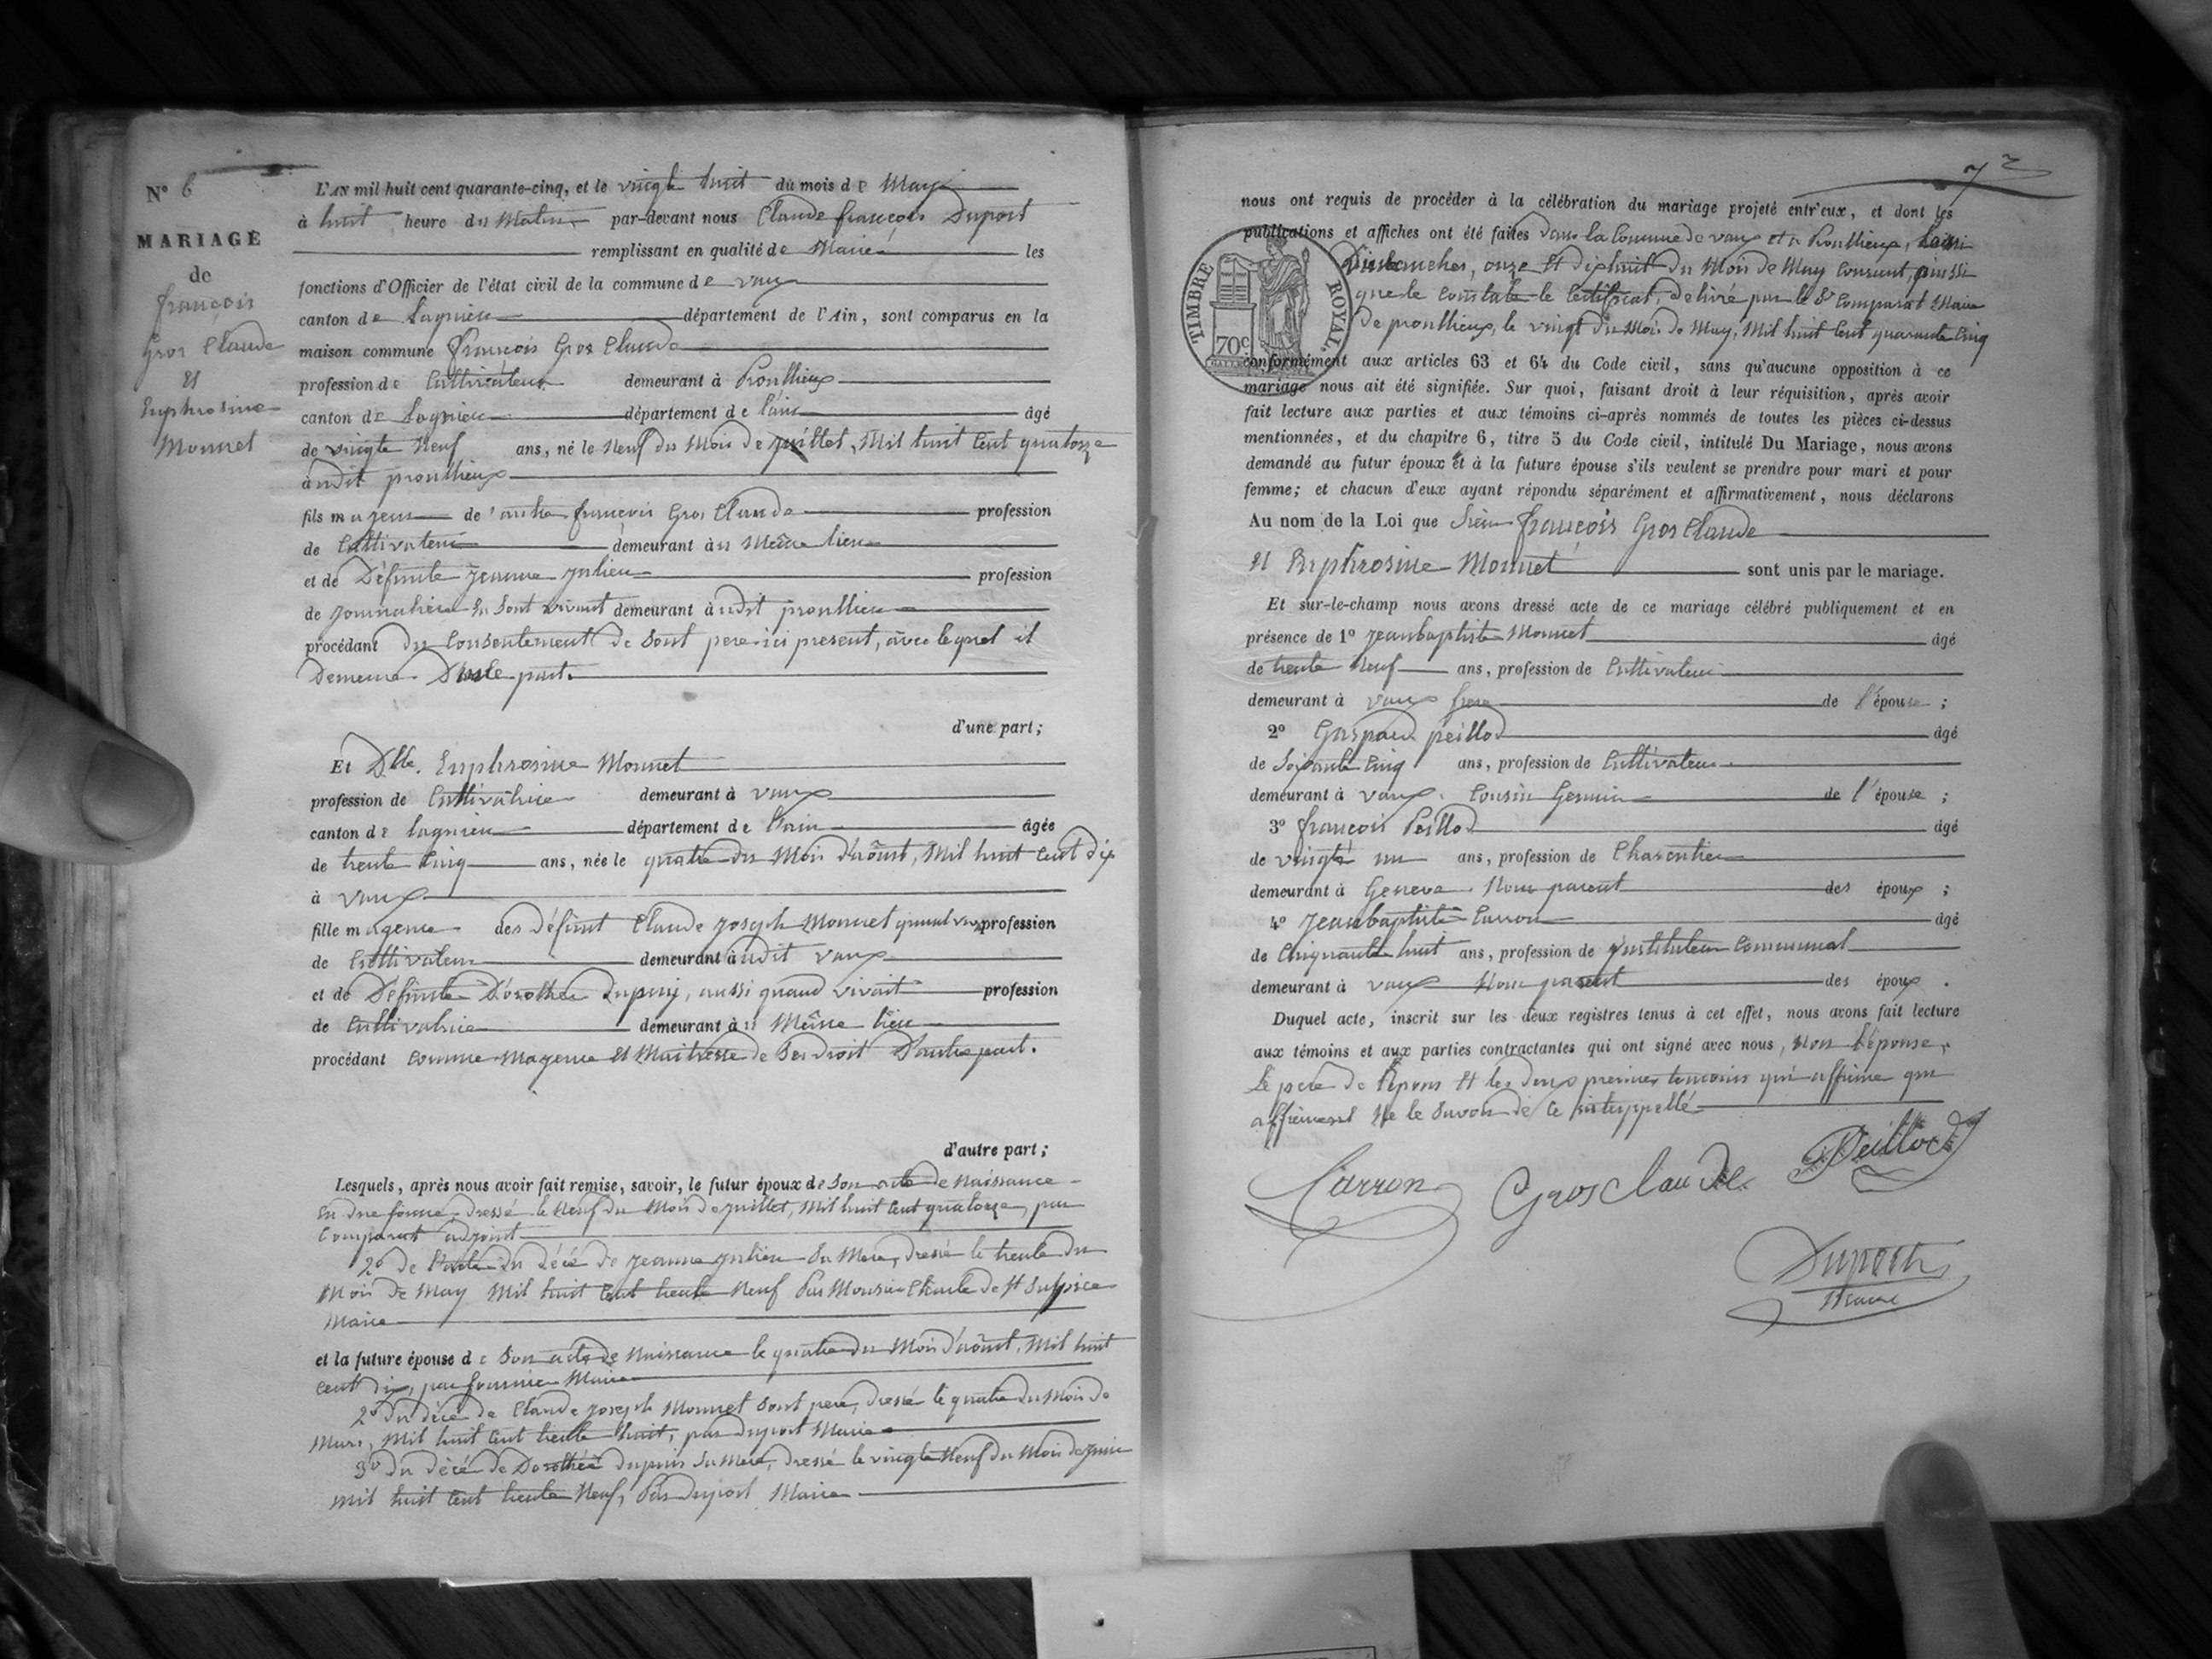 N° 6
MARIAGE
de
françois
Gros Claude
Et
Euphrosine
Monnet
L'AN mil huit cent quarante-cinq, et le vingt huit du mois de May
à huit heure du Matin par-devant nous Claude françois Dupont
remplissant en qualité de Maire les
fonctions d'Officier de l'état civil de la commune de vaux
canton de Lagnieu département de l'Ain, sont comparus en la
maison commune françois Gros Claude
profession de Cultivateur demeurant à Proullieux
canton de Lagnieu département de l'ain âgé
de vingte Neuf ans, né le Neuf du Mois de juillet, Mil huit Cent quatorze
audit proullieux
fils majeur de autre françois Gros Claude profession
de Cultivateur demeurant au Même lieu
et de Défunte Jeanne Julien profession
de journalière En sont vivant demeurant audit proullieu
procédant du Consentement de sont pere ici present, avec lequel il
Demeure D'une part.
d'une part;
Et Dlle. Euphrosine Monnet
profession de Cultivatrice demeurant à vaux
canton de lagnieu département de l'ain âgée
de trente Cinq ans, née le quatre du Mois d'août, Mil huit Cent dix
à vaux
fille majeure des défunt Claude joseph Monnet profession
de Cultivateur demeurant audit vaux
et de Défunte Dorothée Dupuis, aussi quand vivait profession
de Cultivatrice demeurant au Même lieu
procédant comme majeure Et Maitresse de Ses droit D'autre part.
d'autre part;
Lesquels, après nous avoir fait remise, savoir, le futur époux de son acte de Naissance
En due forme, dressé le Neuf du Mois de juillet, Mil huit Cent quatorze, par
Comparat adjoint
2° de l'acte du décé de jeanne julien Sa Mere, dressé le trente du
Mois de May Mil huit Cent trente Neuf Par Monsieur de St Sulpice
Maire
et la future épouse de Son acte de Naissance le quatre du Mois d'août, Mil huit
cent dix, par fournier Maire
2° du décé de Claude joseph Monnet Sont pere, dressé le quatre du Mois de
Mars, Mil huit Cent trente huit, par dupont Maire
3° du décé de Dorothée dupuis Sa Mere, dressé le vingte Neuf du Mois de juin
Mil huit Cent trente Neuf, Par Dupont Maire
7
nous ont requis de procéder à la célébration du mariage projeté entr'eux, et dont les
publications et affiches ont été faites dans la Commune de vaux et a Proullieux,
Dimanches, onze Et dixhuit du Mois de May Courant, ainssi
que le Constate le Certificat, delivré par le Sr Comparat Maire
de proullieux, le vingt du Mois de May, Mil huit Cent quarante Cinq
TIMBRE ROYAL.
70c
conformément aux articles 63 et 64 du Code civil, sans qu'aucune opposition à ce
mariage nous ait été signifiée. Sur quoi, faisant droit à leur réquisition, après avoir
fait lecture aux parties et aux témoins ci-après nommés de toutes les pièces ci-dessus
mentionnées, et du chapitre 6, titre 5 du Code civil, intitulé Du Mariage, nous avons
demandé au futur époux et à la future épouse s'ils veulent se prendre pour mari et pour
femme; et chacun d'eux ayant répondu séparément et affirmativement, nous déclarons
Au nom de la Loi que Sieur françois Gros Claude
Et Euphrosine Monnet sont unis par le mariage.
Et sur-le-champ nous avons dressé acte de ce mariage célébré publiquement et en
présence de 1° Jeanbaptiste Monnet âgé
de trente Neuf ans, profession de Cultivateur
demeurant à vaux frere de l'épouse ;
2° Gaspard peillod âgé
de Soixante Cinq ans, profession de Cultivateur
demeurant à vaux. Cousin Germain de l'épouse ;
3° françois Peillod âgé
de vingte un ans, profession de Charpentier
demeurant à Geneve Non parent des époux ;
4° Jeanbaptiste Carron âgé
de Cinquante huit ans, profession de Instituteur Communal
demeurant à vaux Non parent des époux .
Duquel acte, inscrit sur les deux registres tenus à cet effet, nous avons fait lecture
aux témoins et aux parties contractantes qui ont signé avec nous, Non l'épouse,
Le pere de l'époux Et les deux premier temoins qui
affirment Ne le Savoir de Ce interppellé
Carron Gros Claude Peillod
Dupont
Maire